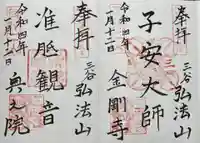 奉拝
三谷 弘法山
子安大師
令和四年
一月十二日
金剛寺
奉拝
三谷 弘法山
准胝観音
令和四年
一月十二日
奥之院